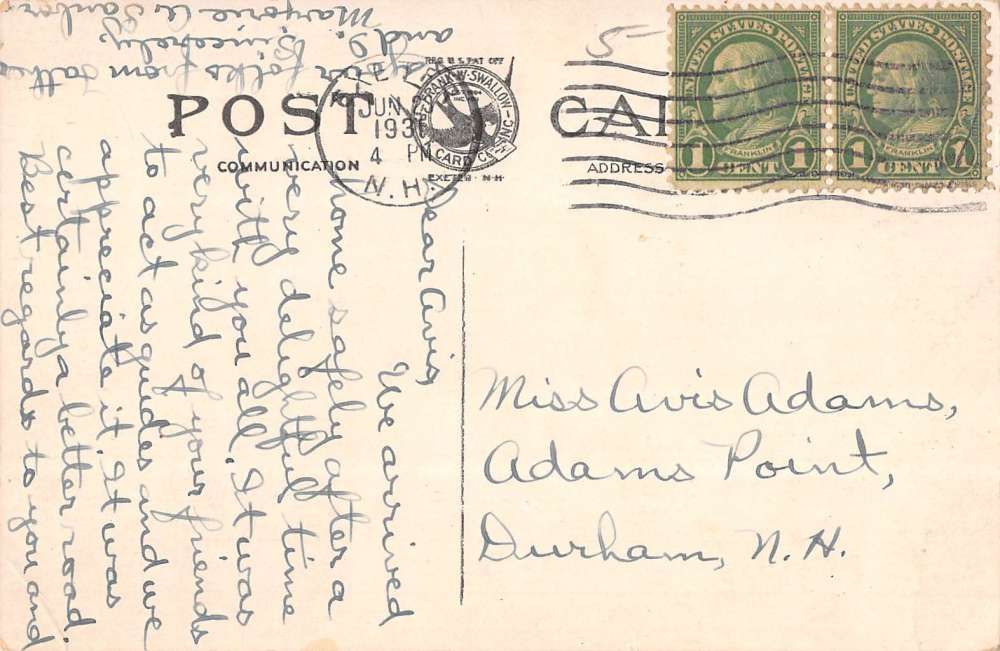 POST CAR
COMMUNICATION
ADDRESS
REG U.S PAT OFF
FRANK W. SWALLOW
CARD CO. INC.
EXETER - N-H
JUN
193
4 PM
N.H.
UNITED STATES POSTAGE
FRANKLIN
1 CENT 1
UNITED STATES POSTAGE
FRANKLIN
1 CENT 1
5
Dear Avis,
We arrived
home safely after a
very delightful time
with you all. It was
very kind of your friends
to act as guides and we
appreciate it. It was
certainly a better road.
Best regards to you and
your folks from father
and I. Sincerely,
Marjorie A.
Miss Avis Adams,
Adams Point,
Durham, N.H.